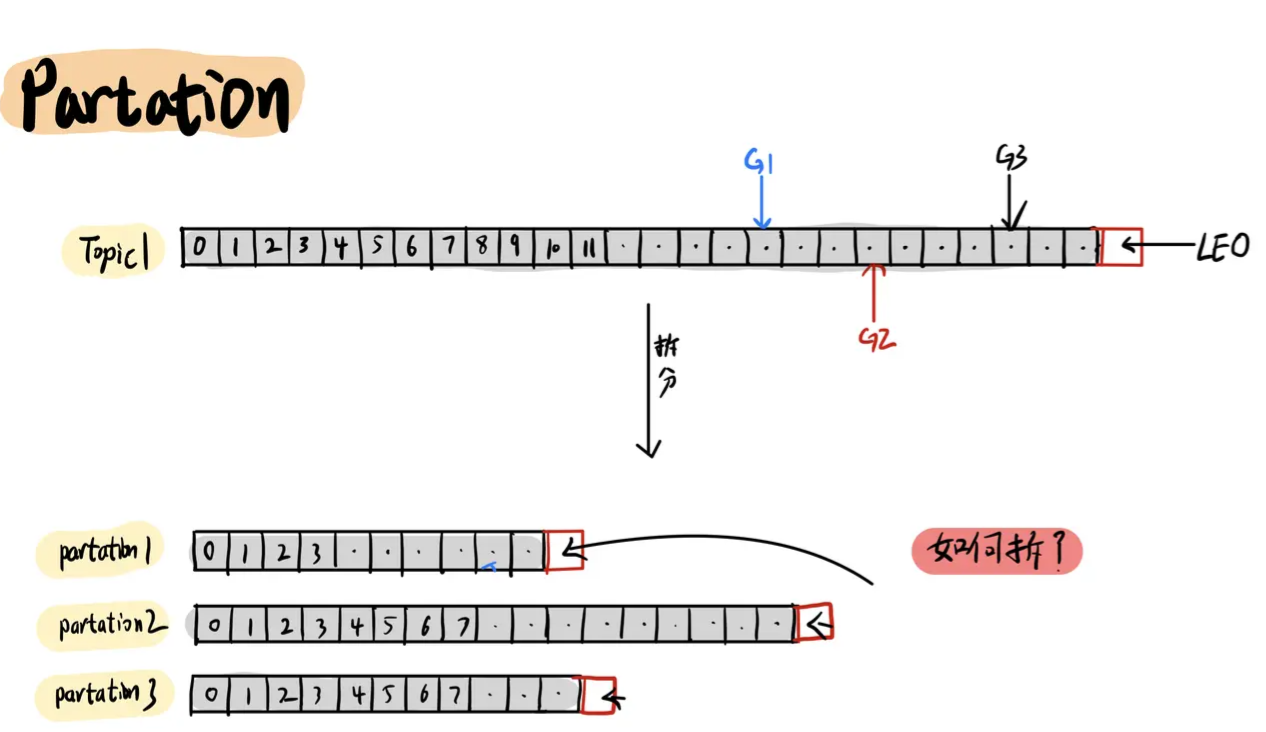 Partation
G1
G3
Topic1 0 1 2 3 4 5 6 7 8 9 10 11 . . . . . . . . . . . . . . LEO
G2
拆
分
partation1 0 1 2 3 . . . . . .
如何拆?
partation2 0 1 2 3 4 5 6 7 . . . . . . . . .
partation3 0 1 2 3 4 5 6 7 . . .